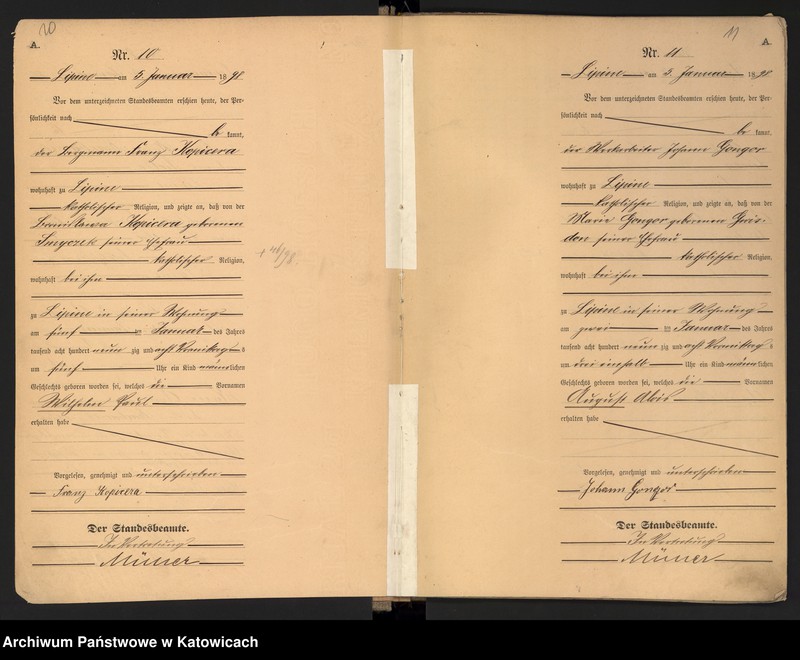 10
A.
Nr. 10
Lipine am 5 Januar 1898
Vor dem unterzeichneten Standesbeamten erschien heute, der Per-
sönlichkeit nach
be kannt,
der Bergmann Franz Kopicera
wohnhaft zu Lipine
katholischer Religion, und zeigte an, daß von der
Bronislawa Kopicera geborenen
Smyczek seiner Ehefrau
katholischer Religion,
wohnhaft bei ihm
zu Lipine in seiner Wohnung
am fünf ten Januar des Jahres
tausend acht hundert neun zig und acht Vormittags
um fünf Uhr ein Kind männlichen
Geschlechts geboren worden sei, welches die Vornamen
Wilhelm Paul
erhalten habe
Vorgelesen, genehmigt und unterschrieben
Franz Kopicera
Der Standesbeamte.
In Vertretung
Müller
11
A.
Nr. 11
Lipine am 5. Januar 1898
Vor dem unterzeichneten Standesbeamten erschien heute, der Per-
sönlichkeit nach
be kannt,
der Werkarbeiter Johann Gongor
wohnhaft zu Lipine
katholischer Religion, und zeigte an, daß von der
Marie Gongor geborenen
seiner Ehefrau
katholischer Religion,
wohnhaft bei ihm
zu Lipine in seiner Wohnung
am zwei ten Januar des Jahres
tausend acht hundert neun zig und acht Vormittags
um drei einhalb Uhr ein Kind männlichen
Geschlechts geboren worden sei, welches die Vornamen
August Alois
erhalten habe
Vorgelesen, genehmigt und unterschrieben
Johann Gongor
Der Standesbeamte.
In Vertretung
Müller
Archiwum Państwowe w Katowicach